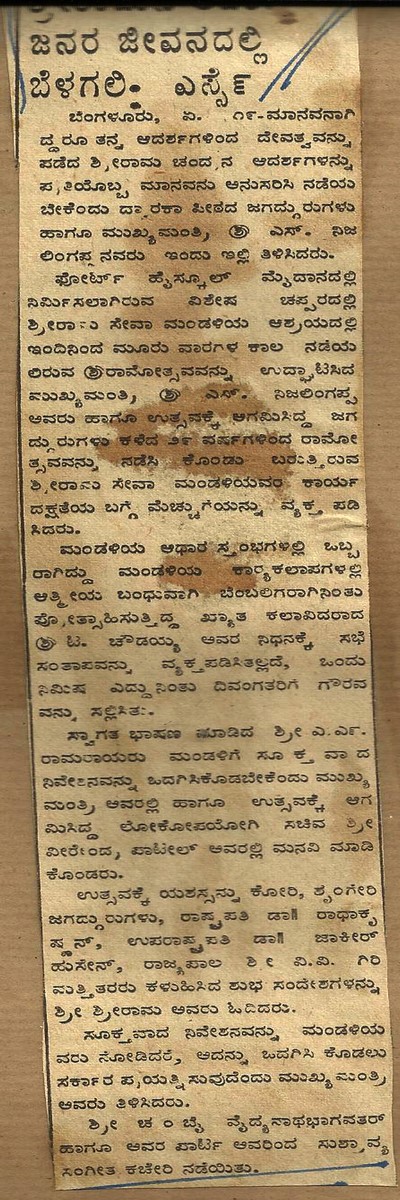 ಜನರ ಜೀವನದಲ್ಲಿ
ಬೆಳಗಲಿ: ಎಸ್ಸೆ೯
ಬೆಂಗಳೂರು, ಏ. ೧೯-ಮಾನವನಾಗಿ
ದ್ದರೂ ತನ್ನ ಆದರ್ಶಗಳಿಂದ ದೇವತ್ವವನ್ನು
ಪಡೆದ ಶ್ರೀರಾಮ ಚಂದ್ರನ ಆದರ್ಶಗಳನ್ನು
ಪ್ರತಿಯೊಬ್ಬ ಮಾನವನು ಅನುಸರಿಸಿ ನಡೆಯ
ಬೇಕೆಂದು ದ್ವಾರಕಾ ಪೀಠದ ಜಗದ್ಗುರುಗಳು
ಹಾಗೂ ಮುಖ್ಯಮಂತ್ರಿ ಶ್ರೀ ಎಸ್. ನಿಜ
ಲಿಂಗಪ್ಪನವರು ಇಂದು ಇಲ್ಲಿ ತಿಳಿಸಿದರು.
ಫೋರ್ಟ್ ಹೈಸ್ಕೂಲ್ ಮೈದಾನದಲ್ಲಿ
ನಿರ್ಮಿಸಲಾಗಿರುವ ವಿಶೇಷ ಚಪ್ಪರದಲ್ಲಿ
ಶ್ರೀರಾಮ ಸೇವಾ ಮಂಡಳಿಯ ಆಶ್ರಯದಲ್ಲಿ
ಇಂದಿನಿಂದ ಮೂರು ವಾರಗಳ ಕಾಲ ನಡೆಯ
ಲಿರುವ ಶ್ರೀರಾಮೋತ್ಸವವನ್ನು ಉದ್ಘಾಟಿಸಿದ
ಮುಖ್ಯಮಂತ್ರಿ ಶ್ರೀ ಎಸ್. ನಿಜಲಿಂಗಪ್ಪ
ಅವರು ಹಾಗೂ ಉತ್ಸವಕ್ಕೆ ಆಗಮಿಸಿದ್ದ ಜಗ
ದ್ಗುರುಗಳು ಕಳೆದ ೨೯ ವರ್ಷಗಳಿಂದ ರಾಮೋ
ತ್ಸವವನ್ನು ನಡೆಸಿ ಕೊಂಡು ಬರುತ್ತಿರುವ
ಶ್ರೀರಾಮ ಸೇವಾ ಮಂಡಳಿಯವರ ಕಾರ್ಯ
ದಕ್ಷತೆಯ ಬಗ್ಗೆ ಮೆಚ್ಚುಗೆಯನ್ನು ವ್ಯಕ್ತ ಪಡಿ
ಸಿದರು.
ಮಂಡಳಿಯ ಆಧಾರ ಸ್ತಂಭಗಳಲ್ಲಿ ಒಬ್ಬ
ರಾಗಿದ್ದು ಮಂಡಳಿಯ ಕಾರ್‍ಯಕಲಾಪಗಳಲ್ಲಿ
ಆತ್ಮೀಯ ಬಂಧುವಾಗಿ ಬೆಂಬಲಿಗರಾಗಿನಿಂತು
ಪ್ರೋತ್ಸಾಹಿಸುತ್ತಿದ್ದ ಖ್ಯಾತ ಕಲಾವಿದರಾದ
ಶ್ರೀ ಟಿ. ಚೌಡಯ್ಯ ಅವರ ನಿಧನಕ್ಕೆ ಸಭೆ
ಸಂತಾಪವನ್ನು ವ್ಯಕ್ತಪಡಿಸಿತಲ್ಲದೆ, ಒಂದು
ನಿಮಿಷ ಎದ್ದು ನಿಂತು ದಿವಂಗತರಿಗೆ ಗೌರವ
ವನ್ನು ಸಲ್ಲಿಸಿತು.
ಸ್ವಾಗತ ಭಾಷಣ ಮಾಡಿದ ಶ್ರೀ ಎ.ಎಸ್.
ರಾಮರಾಯರು ಮಂಡಳಿಗೆ ಸೂಕ್ತವಾದ
ನಿವೇಶನವನ್ನು ಒದಗಿಸಿಕೊಡಬೇಕೆಂದು ಮುಖ್ಯ
ಮಂತ್ರಿ ಅವರಲ್ಲಿ ಹಾಗೂ ಉತ್ಸವಕ್ಕೆ ಆಗ
ಮಿಸಿದ್ದ ಲೋಕೋಪಯೋಗಿ ಸಚಿವ ಶ್ರೀ
ವೀರೇಂದ್ರ ಪಾಟೀಲ್ ಅವರಲ್ಲಿ ಮನವಿ ಮಾಡಿ
ಕೊಂಡರು.
ಉತ್ಸವಕ್ಕೆ ಯಶಸ್ಸನ್ನು ಕೋರಿ, ಶೃಂಗೇರಿ
ಜಗದ್ಗುರುಗಳು, ರಾಷ್ಟ್ರಪತಿ ಡಾ|| ರಾಧಾಕೃ
ಷ್ಣನ್, ಉಪರಾಷ್ಟ್ರಪತಿ ಡಾ|| ಜಾಕೀರ್
ಹುಸೇನ್, ರಾಜ್ಯಪಾಲ ಶ್ರೀ ವಿ.ವಿ. ಗಿರಿ
ಮತ್ತಿತರರು ಕಳುಹಿಸಿದ ಶುಭ ಸಂದೇಶಗಳನ್ನು
ಶ್ರೀ ಶ್ರೀರಾಮ ಅವರು ಓದಿದರು.
ಸೂಕ್ತವಾದ ನಿವೇಶನವನ್ನು ಮಂಡಳಿಯ
ವರು ನೋಡಿದರೆ, ಅದನ್ನು ಒದಗಿಸಿ ಕೊಡಲು
ಸರ್ಕಾರ ಪ್ರಯತ್ನಿಸುವುದೆಂದು ಮುಖ್ಯಮಂತ್ರಿ
ಅವರು ತಿಳಿಸಿದರು.
ಶ್ರೀ ಚಂಬೈ ವೈದ್ಯನಾಥಭಾಗವತರ್
ಹಾಗೂ ಅವರ ಪಾರ್ಟಿ ಅವರಿಂದ ಸುಶ್ರಾವ್ಯ
ಸಂಗೀತ ಕಚೇರಿ ನಡೆಯಿತು.